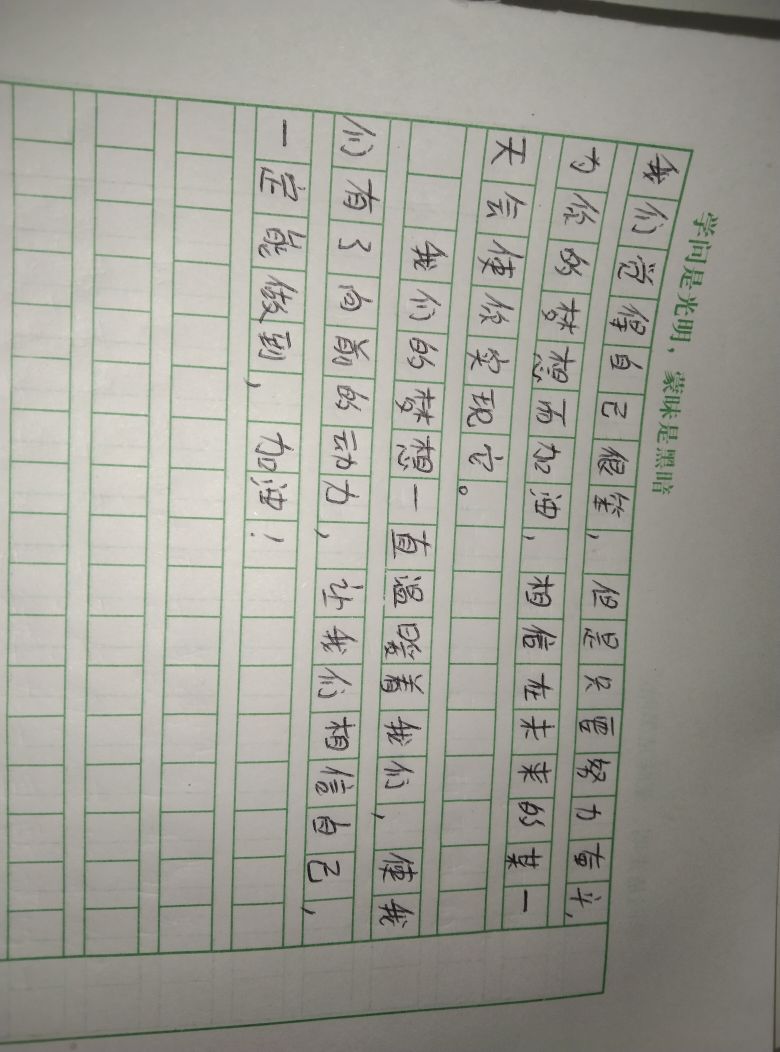 学问是光明，蒙昧是黑暗
我们觉得自己很笨，但是只要努力奋斗，
为你的梦想而加油，相信在未来的某一
天会使你实现它。
我们的梦想一直温暖着我们，使我
们有了向前的动力，让我们相信自己，
一定能做到，加油！